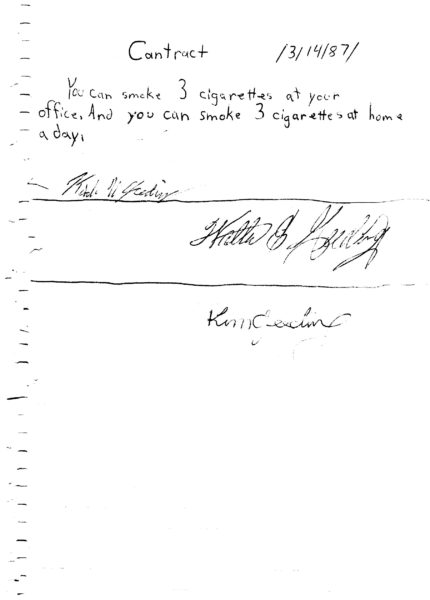 Contract /3/14/87/
You can smoke 3 cigarettes at your
office, And you can smoke 3 cigarettes at home
a day,